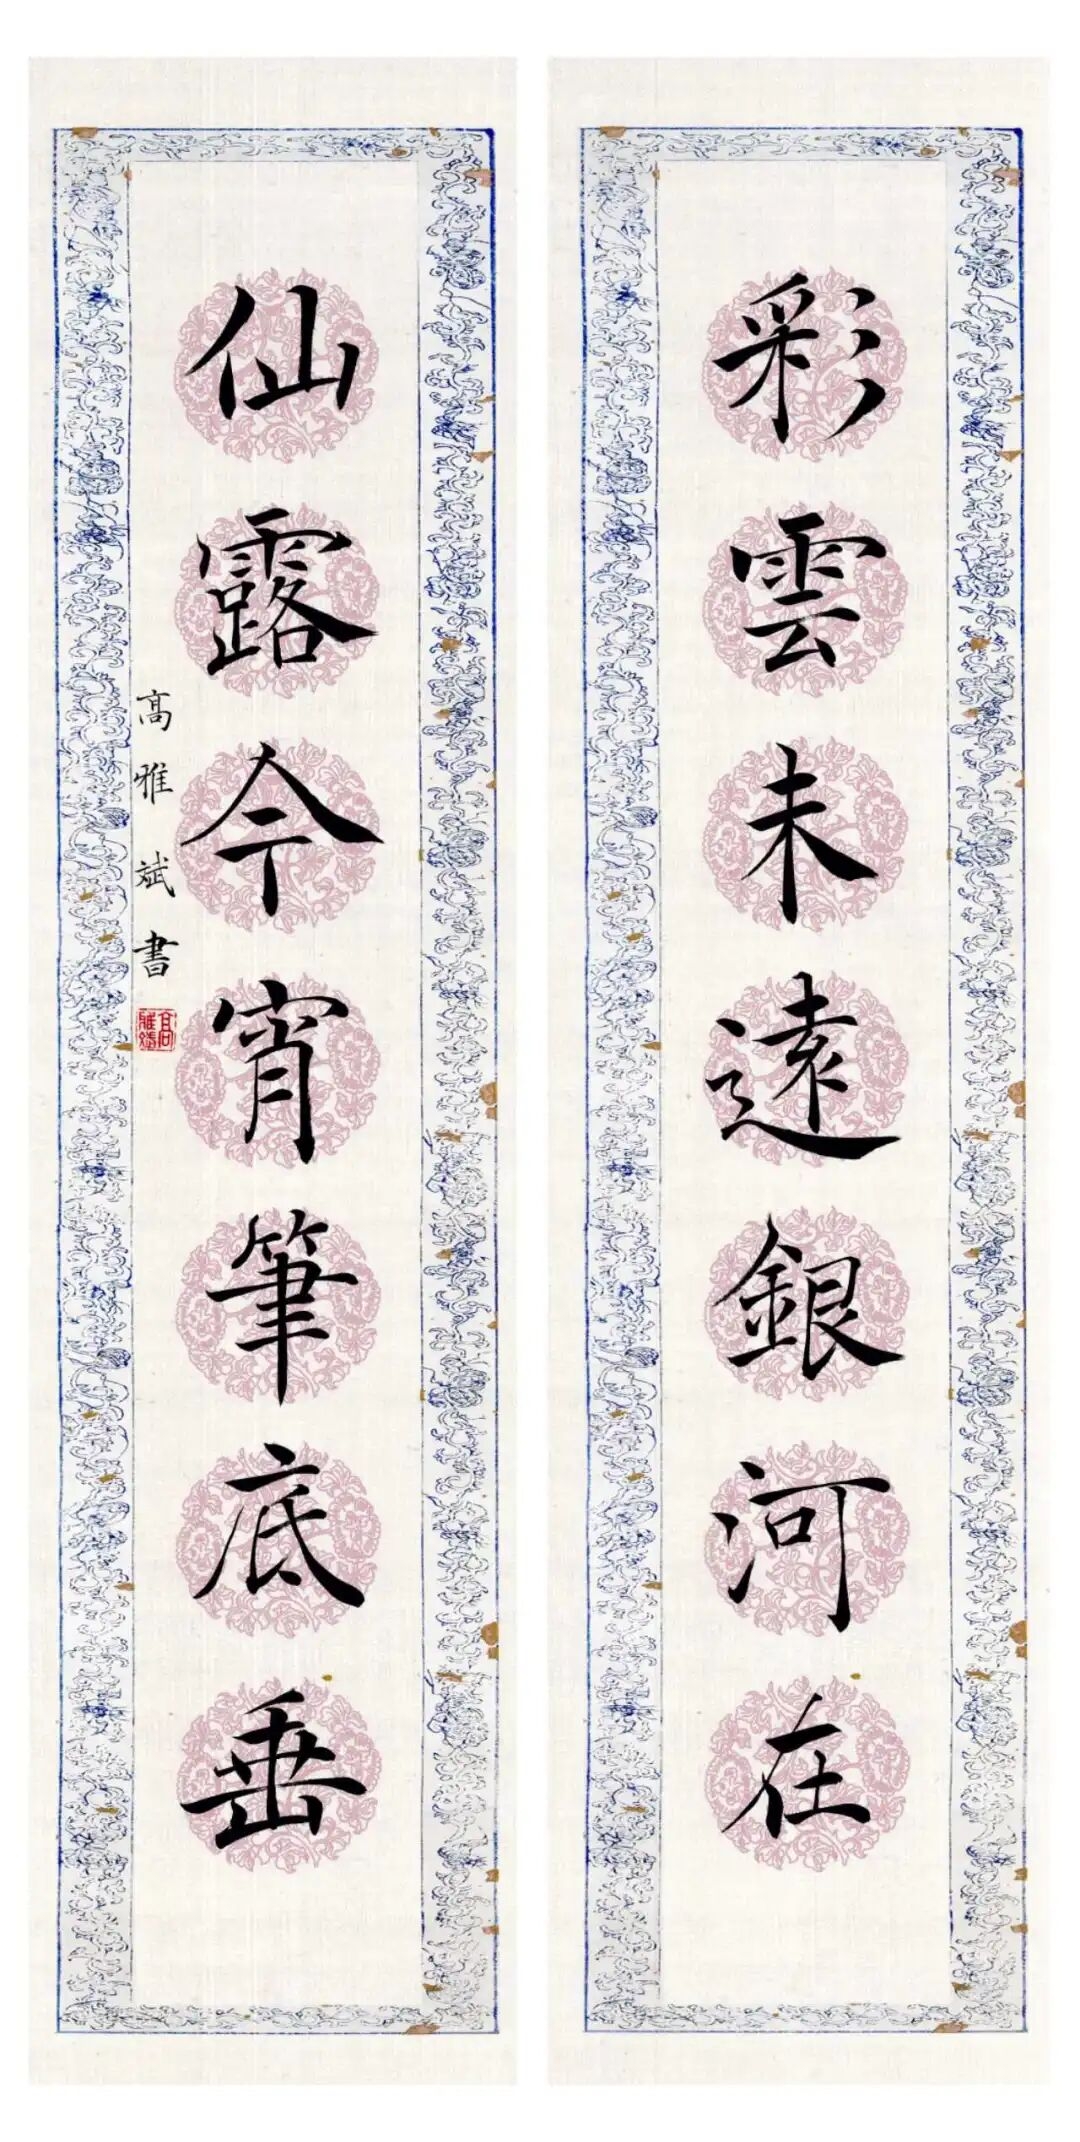 彩雲未遠銀河在
仙露今宵筆底垂
高雅斌書